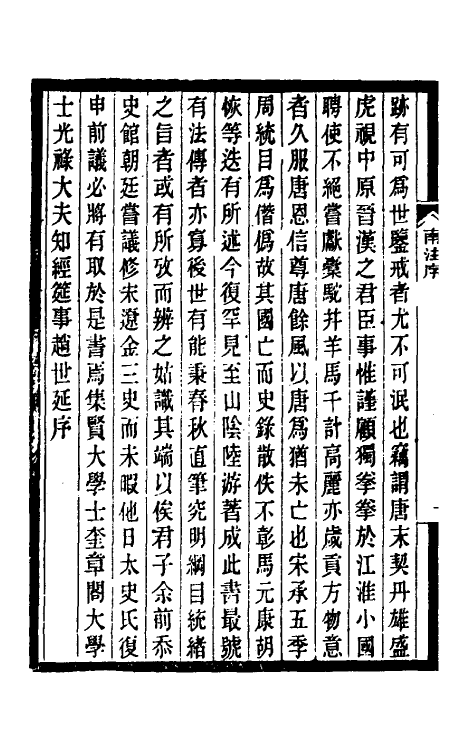 跡有可爲世鑒戒者尤不可泯也竊謂唐末契丹雄盛
虎視中原晉漢之君臣事惟謹顧獨拳拳於江淮小國
聘使不絕嘗獻橐駝并羊馬千計高麗亦歲貢方物意
者久服唐恩信尊唐餘風以唐爲猶未亡也宋承五季
周統目爲僭僞故其國亡而史錄散佚不彰馬元康胡
恢等迭有所述今復罕見至山陰陸游著成此書最號
有法傳者亦寡後世有能秉春秋直筆究明綱目統緖
之旨者或有所攷而辨之姑識其端以俟君子余前忝
史館朝廷嘗議修宋遼金三史而未暇他日太史氏復
申前議必將有取於是書焉集賢大學士奎章閣大學
士光祿大夫知經筵事趙世延序
南注序
一